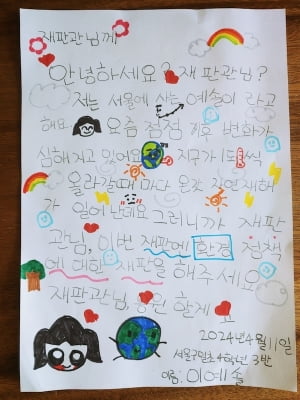 재판관님께
안녕하세요? 재판관님?
저는 서울에 사는 예솔이 라고
해요 요즘 점점 기후 변화가
심해지고 있어요 지구가 1도씩
올라갈때 마다 온갖 자연재해
가 일어 난데요 그러니까 재판
관님, 이번 재판에 환경 정책
에 대한 재판을 해주세요
재판관님, 응원 할게요
2024년 4월 11일
4학년 3반
이름: 이예솔